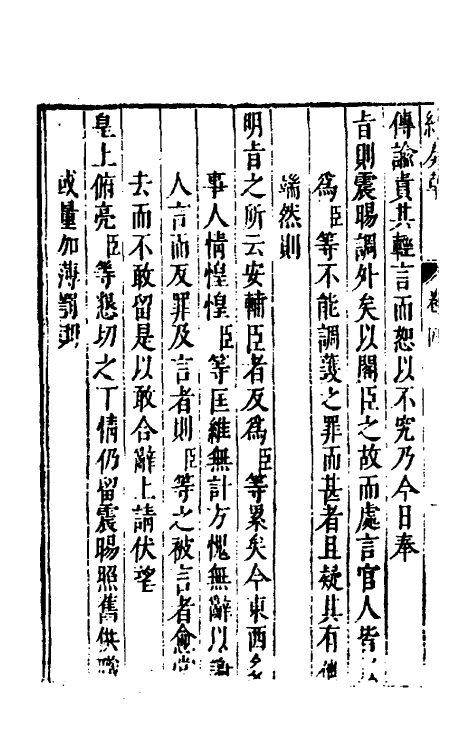 卷四
傳諭責其輕言而恕以不究乃今日奉
旨則震暘調外矣以閣臣之故而處言官人皆
爲臣等不能調護之罪而甚者且疑其有他
端然則
明旨之所云安輔臣者反爲臣等累矣今東西多
事人情惶惶臣等匡維無計方愧無辭以謝
人言而反罪及言者則臣等之被言者愈當
去而不敢留是以敢合辭上請伏望
皇上俯亮臣等懇切之下情仍留震暘照舊供職
或量加薄罰